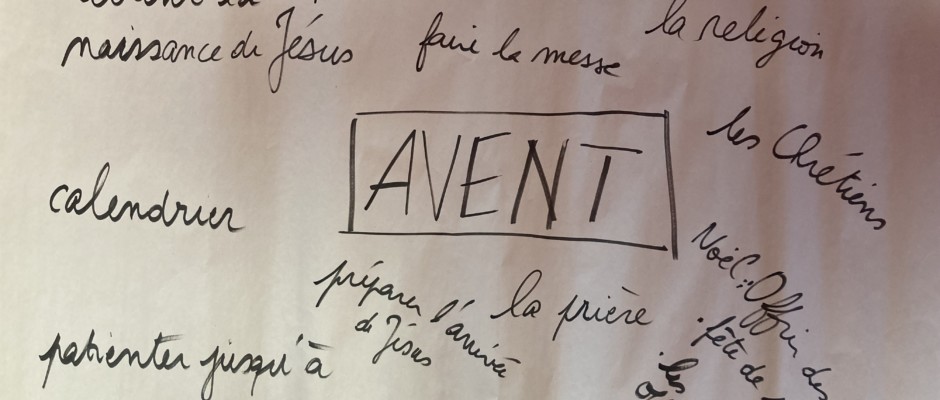 naissance de Jésus
faire la messe
la religion
les Chrétiens
AVENT
calendrier
préparer l'arrivée
de Jésus
la prière
Noël: Offrir des
• fête de
• les
patienter jusqu'à